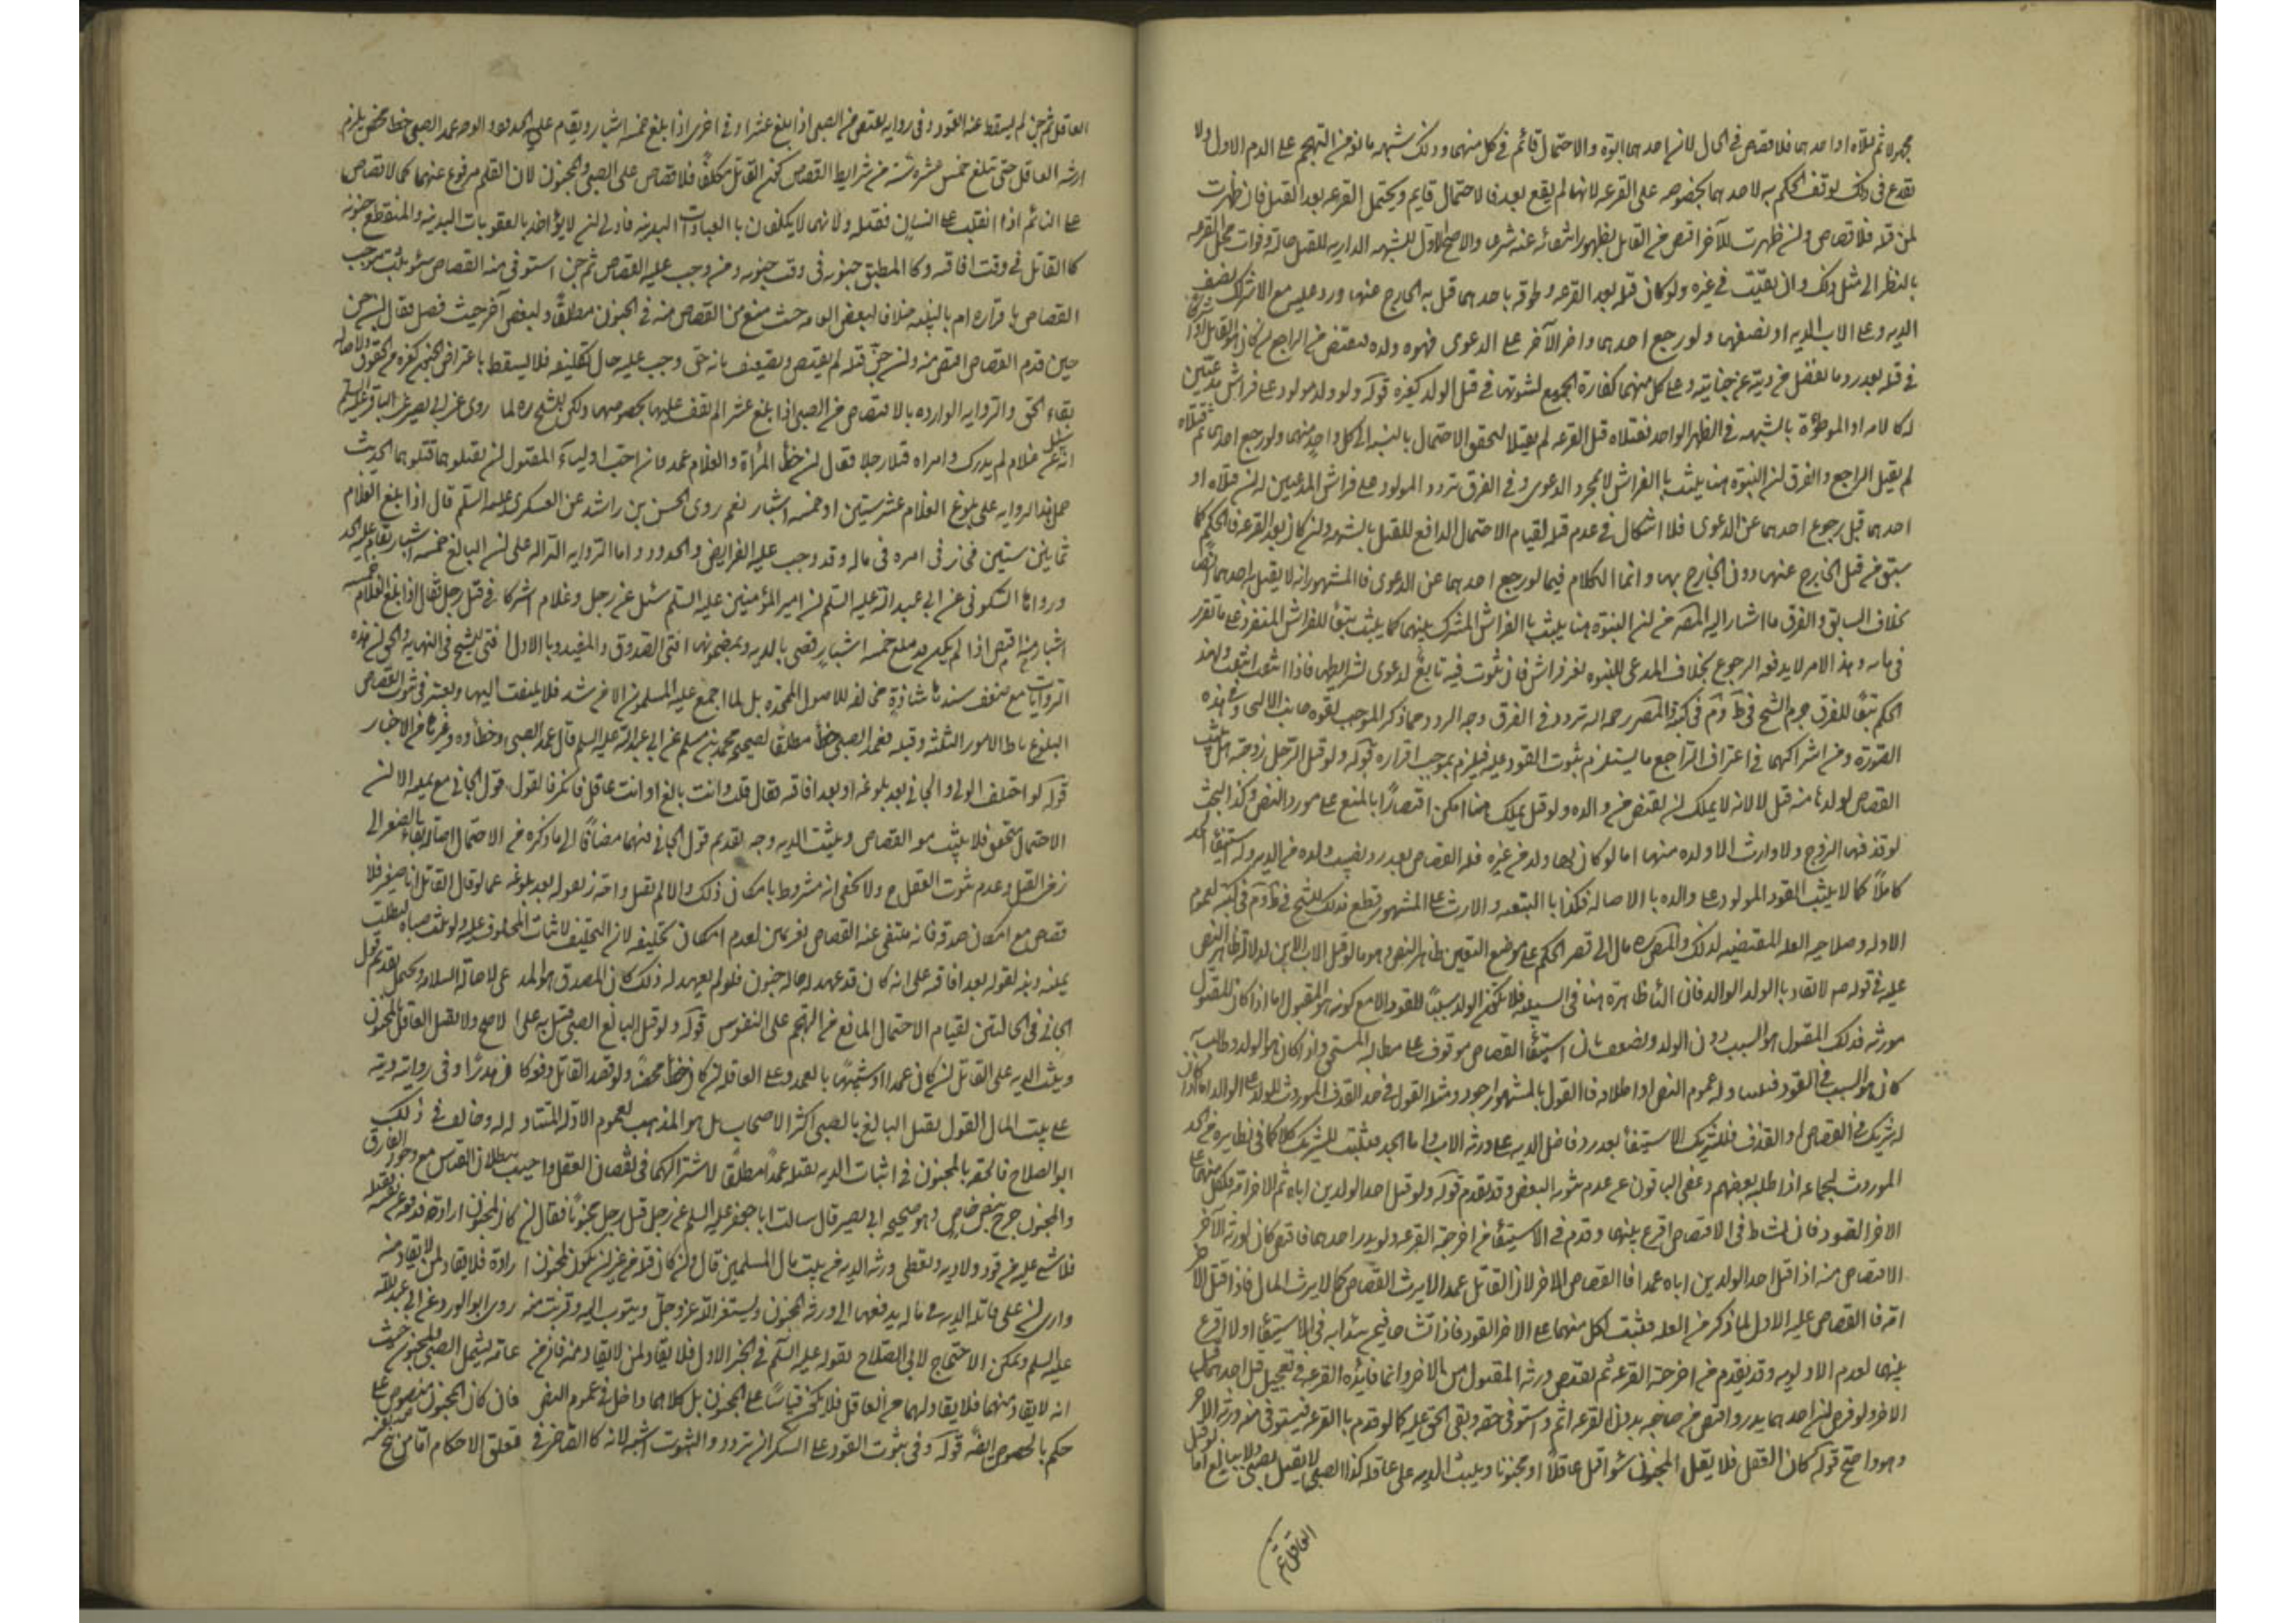 مجهولا ثم قتلاه او احدهما فلا قصاص في الحال لان احدهما ابوه والاحتمال قائم في كل منهما وذلك شبهه مانع من التهجم على الدم الاول ولا
يقدح في ذلك توقف الحكم به لاحدهما بخصوصه على القرعه لانها لم يقع بعد فالاحتمال قايم ويحتمل القرعه بعد القتل فان ظهرت
لمن قتله فلا قصاص وان ظهرت للآخر اقتص من القاتل لظهور انتفائه عنه شرعا والاصح الاول للشبهه الداريه للقتل حالة وفوات محل القرعه
بالنظر الى مثل ذلك وان بقيت في غيره ولو كان قتله بعد القرعه ولحوقه باحدهما قتل به الخارج عنهما ورد عليه مع الاشتراك نصف
الديه وعلى الاب الديه او نصفها ولو رجع احدهما واصر الآخر على الدعوى فهو ولده فيقتص من الراجع ان كان هو القاتل او شريكا
في قتله بعد رد ما يفضل من ديته عن جنايته وعلى كل منهما كفارة الجميع لثبوتها في قتل الولد كغيره قوله ولو ولد مولود على فراش مدعيين
له كالامه او الموطوءة بالشبهه في الطهر الواحد فقتلاه قبل القرعه لم يقتلا لتحقق الاحتمال بالنسبة الى كل واحد منهما ولو رجع احدهما ثم قتلاه
لم يقتل الراجع والفرق ان البنوة هنا يثبت بالفراش لا بمجرد الدعوى وفي الفرق تردد المولود على فراش المدعيين له ان قتلاه او
احدهما قبل رجوع احدهما عن الدعوى فلا اشكال في عدم قتله لقيام الاحتمال الدافع للقتل بالشبهه وان كان بعد القرعه فالحكم كما
سبق من قتل الخارج عنهما دون الخارج بها وانما الكلام فيما لو رجع احدهما عن الدعوى فالمشهور انه لا يقتل احدهما ايضا
بخلاف السابق والفرق ما اشار اليه المصره من ان البنوة هنا يثبت بالفراش المشترك بينهما كما يثبت تبعا للفراش المنفرد على ما تقرر
في بابه وهذا الامر لا يدفعه الرجوع بخلاف المدعى للبنوه بغير فراش فان ثبوت فيه تابع لدعوى بشرايطها فاذا انتفت انتفت ولهذا
الحكم تبعا للفرق جزم الشيخ في ط وتم في كتبه والمصره رحمه الله تردد في الفرق وجه الرد وما ذكر الموجب لقوه جانب الالحاق في هذه
الصورة ومن اشتراكهما في اعتراف الراجع ما يستلزم ثبوت القود عليه فيلزم بموجب اقراره قوله ولو قتل الرجل زوجته هل يثبت
القصاص لولدها منه قيل لا لانه لا يملك ان يقتص من والده ولو قيل يملك هنا امكن اقتصارا بالمنع على مورد النص وكذا البحث
لو قذفها الزوج ولا وارث الا ولده منهما اما لو كان لها ولد من غيره فله القصاص بعد رد نصيب ولده من الديه وله استيفاء الحد
كاملا كما لا يثبت القود المولود على والده بالاصاله فكذا بالتبعيه والارث على المشهور قطع بذلك الشيخ في ط وتم في كتبه لعموم
الادله وصلاحيه العله المقتضيه لذلك والمصره مال الى قصر الحكم على موضع اليقين ظاهر النص وهو ما لو قتل الاب الابن لدلالة ظاهر النص
عليه في قوله صم لا يقاد بالولد الوالد فان الباء ظاهرة هنا في السببيه فلا يكون الولد سببا للقود الا مع كونه هو المقتول اما اذا كان المقتول
مورثه فذلك المقتول هو السبب دون الولد ويضعف بان استيفاء القصاص موقوف على مطالبه المستحق واذا كان هو الولد وطالب
كان هو السبب في القود فيتناوله عموم النص او اطلاقه فالقول بالمشهور اجود ومثله القول في حد القذف الموروث للولد على الوالد اما اذا كان
له شريك في القصاص او القذف فللشريك الاستيفاء بعد رد فاضل الديه على ورثه الاب واما الحد فيثبت للشريك كملا كما في نظايره من الحد
الموروث لجماعه اذا طلبه بعضهم وعفى الباقون على عدم ثبوته البعض وقد تقدم قوله ولو قتل احد الولدين اباه ثم الاخر امه فلكل منهما على
الاخر القود فان تشاحا في الاقتصاص اقرع بينهما وقدم في الاستيفاء من اخرجته القرعه ولو بدر احدهما فاقتص كان لورثه الآخر
الاقتصاص منه اذا قتل احد الولدين اباه عمدا فالقصاص للاخر لان القاتل عمدا لا يرث القصاص كما لا يرث المال فاذا قتل الاخر
امه فالقصاص عليه للاول لما ذكر من العله فيثبت لكل منهما على الاخر القود فاذا تشاحا فيمن يبتدا به في الاستيفاء اولا اقرع
بينهما لعدم الاولويه وقد تقدم من اخرجته القرعه ثم يقتص ورثه المقتول من الاخر وانما فائده القرعه في تعجيل قتل احدهما قبل
الاخر ولو فرض ان احدهما بدر واقتص من صاحبه بدون القرعه اثم واستوفى حقه وبقى الحق عليه كما لو قدم بالقرعه فيستوفى منه ورثه الاخر
وهو واضح قوله كمال العقل فلا يقتل المجنون سواء قتل عاقلا او مجنونا ويثبت الديه على عاقلته كذا الصبي لا يقتل بصبي ولا ببالغ اما لو قتل
العاقل ثم
العاقل ثم جن لم يسقط عنه القود وفي روايه يقتص من الصبي اذا بلغ عشرا وفي اخرى اذا بلغ خمسة اشبار ويقام عليه الحدود والوجه عمد الصبي خطا محض يلزم
ارشه العاقله حتى تبلغ خمس عشرة سنة من شرايط القصاص كون القاتل مكلفا فلا قصاص على الصبي والمجنون لان القلم مرفوع عنهما كما لا قصاص
على النائم اذا انقلب على انسان فقتله ولانهما لا يكلفون بالعبادات البدنيه فاولى ان لا يؤاخذ بالعقوبات البدنيه والمنقطع جنونه
كالعاقل في وقت افاقته وكالمطبق جنونه في وقت جنونه ومن وجب عليه القصاص ثم جن استوفى منه القصاص سواء ثبت موجب
القصاص باقراره ام بالبينه خلافا لبعض العامه حيث منع من القصاص منه في الجنون مطلقا ولبعض آخر حيث فصل فقال ان جن
حين قدم القصاص اقتص منه وان جن قبله لم يقتص ويضعف بانه حق وجب عليه حال تكليفه فلا يسقط باعتراض الجنون كغيره من الحقوق ولاصاله
بقاء الحق والروايه الوارده بالاقتصاص من الصبي اذا بلغ عشرا لم يقف عليها بخصوصها ولكن الشيخ ره لما روى عن ابي بصير عن الباقر عليه السلم
انه سئل عن غلام لم يدرك وامراه قتلا رجلا فقال ان خطا المرأة والغلام عمد فان احب اولياء المقتول ان يقتلوهما قتلوهما الحديث
حمل هذا الروايه على بلوغ الغلام عشر سنين او خمسة اشبار نعم روى الحسن بن راشد عن العسكرى عليه السلم قال اذا بلغ الغلام
ثماني سنين فجائز في امره في ماله وقد وجب عليه الفرايض والحدود واما الروايه الداله على ان البالغ خمسه اشبار يقام عليه الحد
ورواها السكوني عن ابي عبد الله عليه السلم ان امير المؤمنين عليه السلم سئل عن رجل وغلام اشتركا في قتل رجل فقال اذا بلغ الغلام خمسه
اشبار منه اقتص اذا لم يكن قد بلغ خمسه اشبار قضى بالديه وبمضمونها افتى الصدوق والمفيد وبالاول افتى الشيخ في النهايه والحق ان هذه
الروايات مع ضعف سندها شاذة مخالفه للاصول الممهده بل لما اجمع عليه المسلمون الا من شذ فلا يلتفت اليها ويعتبر في ثبوت القصاص
البلوغ باحد الامور الثلثه وقبله فعمد الصبي خطأ مطلقا لصحيحه محمد بن مسلم عن ابي عبد الله عليه السلم قال عمد الصبي وخطأوه وغيرها من الاخبار
قوله لو اختلف الولي والجاني بعد بلوغه او بعد افاقته فقال قتلت وانت بالغ او انت عاقل فانكر فالقول قول الجاني مع يمينه لان
الاحتمال متحقق فلا يثبت معه القصاص ويثبت الديه وجه تقديم قول الجاني فيهما مضافا الى ما ذكره من الاحتمال اصاله بقاء الصغر الى
زمن القتل وعدم ثبوت العقل ح ولا يخفى انه مشروط بامكان ذلك والا لم يقبل واحترز بقوله بعد بلوغه عما لو قال القاتل انا صغير فلا
قصاص مع امكان صدقه فانه ينتفى عنه القصاص بغير يمين لعدم امكان تحليفه لان التحليف لاثبات المحلوف عليه ولو ثبت صباه لبطلت
يمينه ونبه بقوله بعد افاقته على انه كان قد عهد له حالة جنون فلو لم يعهد له ذلك كان المصدق هو المدعى لاصاله السلامه ويحتمل تقديم قول
الجاني في الحالتين لقيام الاحتمال المانع من التهجم على النفوس قوله ولو قتل البالغ الصبي قتل به على الاصح ولا يقتل العاقل بالمجنون
ويثبت الديه على القاتل ان كان عمدا او شبيها بالعمد وعلى العاقله ان كان خطأ محضا ولو قصد القاتل دفعه كان هدرا وفي روايه ديته
على بيت المال القول بقتل البالغ بالصبي اكثر الاصحاب بل هو المذهب لعموم الادله المتناوله له وخالف في ذلك
ابو الصلاح فالحقه بالمجنون في اثبات الديه بقتله عمدا مطلقا لاشتراكهما في نقصان العقل واجيب ببطلان القياس مع وجود الفارق
والمجنون خرج بنص خاص وهو صحيحه ابي بصير قال سالت ابا جعفر عليه السلم عن رجل قتل رجلا مجنونا فقال ان كان المجنون اراده فدفعه عن نفسه فقتله
فلا شيء عليه من قود ولا ديه ويعطى ورثه الديه من بيت مال المسلمين قال وان كان قتله من غير ان يكون المجنون اراده فلا يقاد لمن لا يقاد منه
وارى ان على قاتله الديه في ماله يدفعها الى ورثه المجنون ويستغفر الله عز وجل ويتوب اليه وقريب منه روى ابو الورد عن ابي عبد الله
عليه السلم ويمكن الاحتجاج لابي الصلاح بقوله عليه السلم في الخبر الاول فلا يقاد لمن لا يقاد منه فان من عامه يشمل الصبي والمجنون حيث
انه لا يقاد منهما فلا يقاد لهما من العاقل فلا يكون قياسا على المجنون بل كلاهما داخل في عموم النص فان كان المجنون منصوصا على
حكمه بالخصوص ايضا قوله وفي ثبوت القود على السكران تردد والثبوت اشبه لانه كالصاحي في تعلق الاحكام اما من بنج نفسه